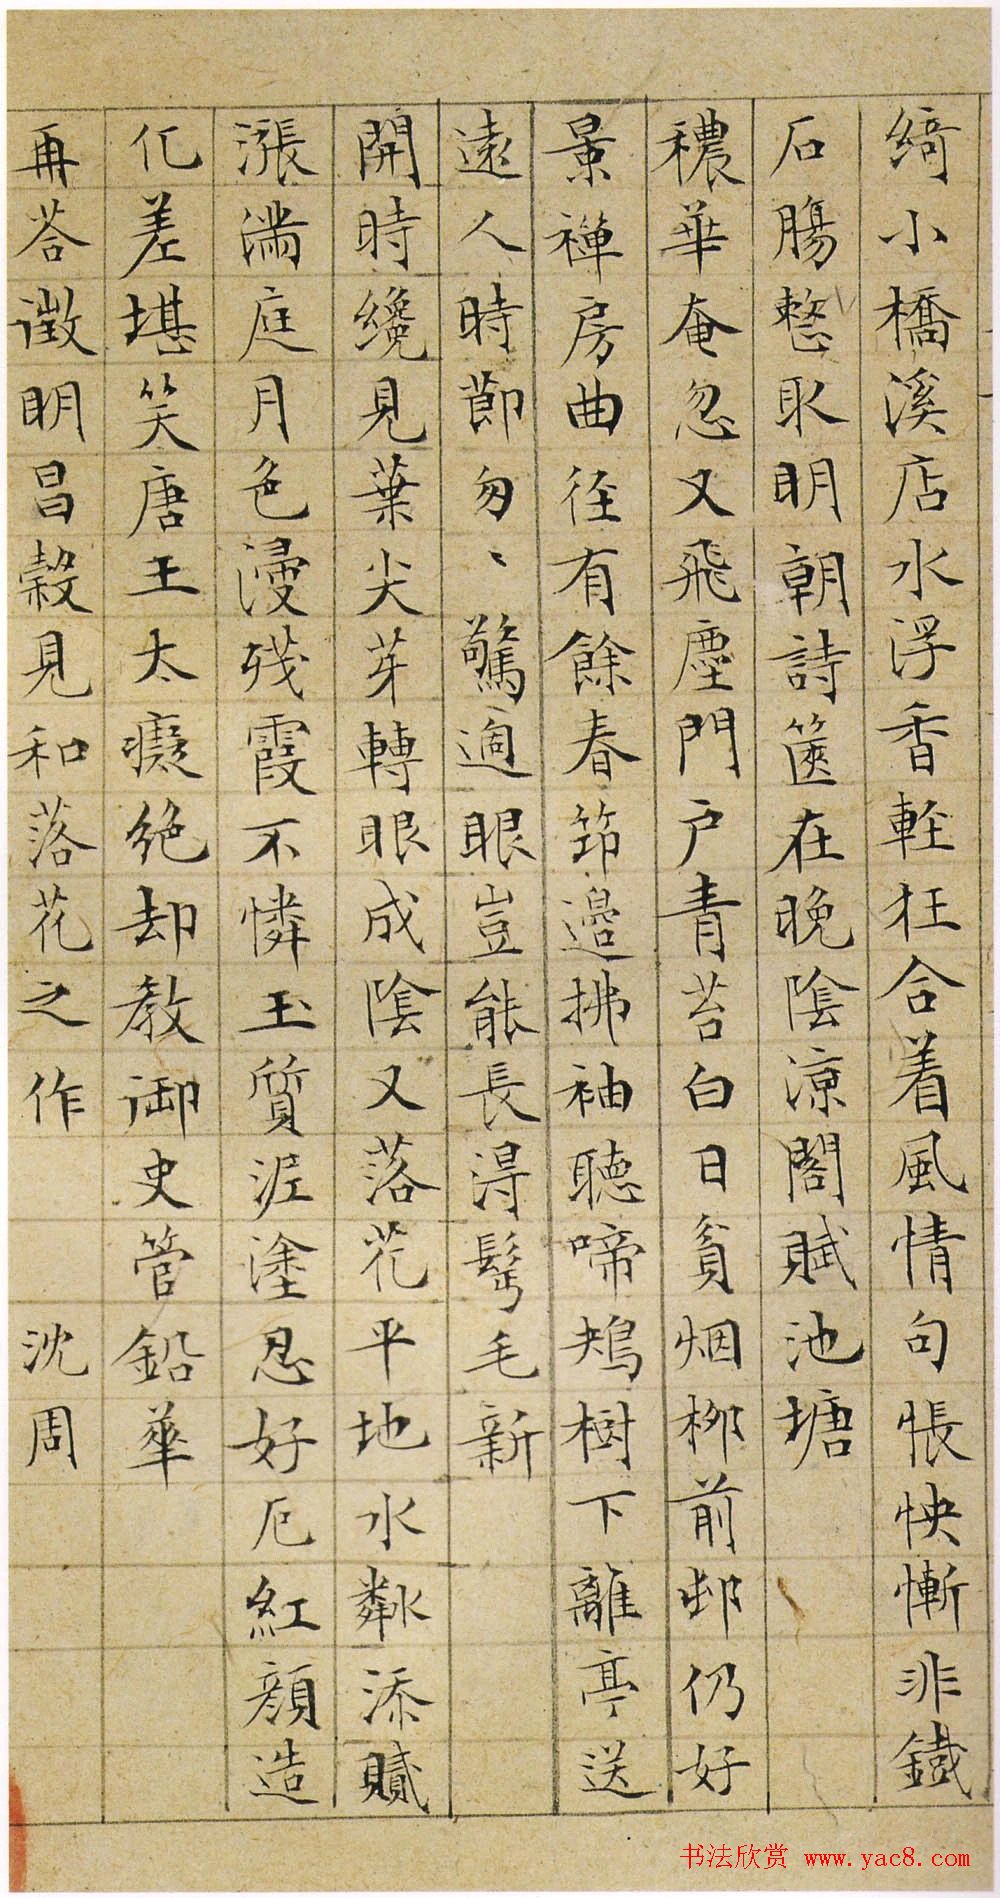 綺小橋溪店水浮香輊狂合着風情句悵怏慚非鐡
石腸愁取明朝詩篋在晚陰涼閣賦池塘
穠華奄忽又飛塵門戶青苔白日貧烟柳前邨仍好
景禅房曲徑有餘春筇邊拂袖聽啼鴂樹下離亭送
遠人時節匆〻驚適眼豈能長淂髩毛新
開時纔見葉尖芽轉眼成陰又落花平地水粼添贜
漲滿庭月色漫殘霞不憐玉質泥塗忍好厄紅顔造
化差堪笑唐王太癡絕却教御史管鉛華
再荅徵明昌穀見和落花之作 沈周
书法欣赏 www.yac8.com